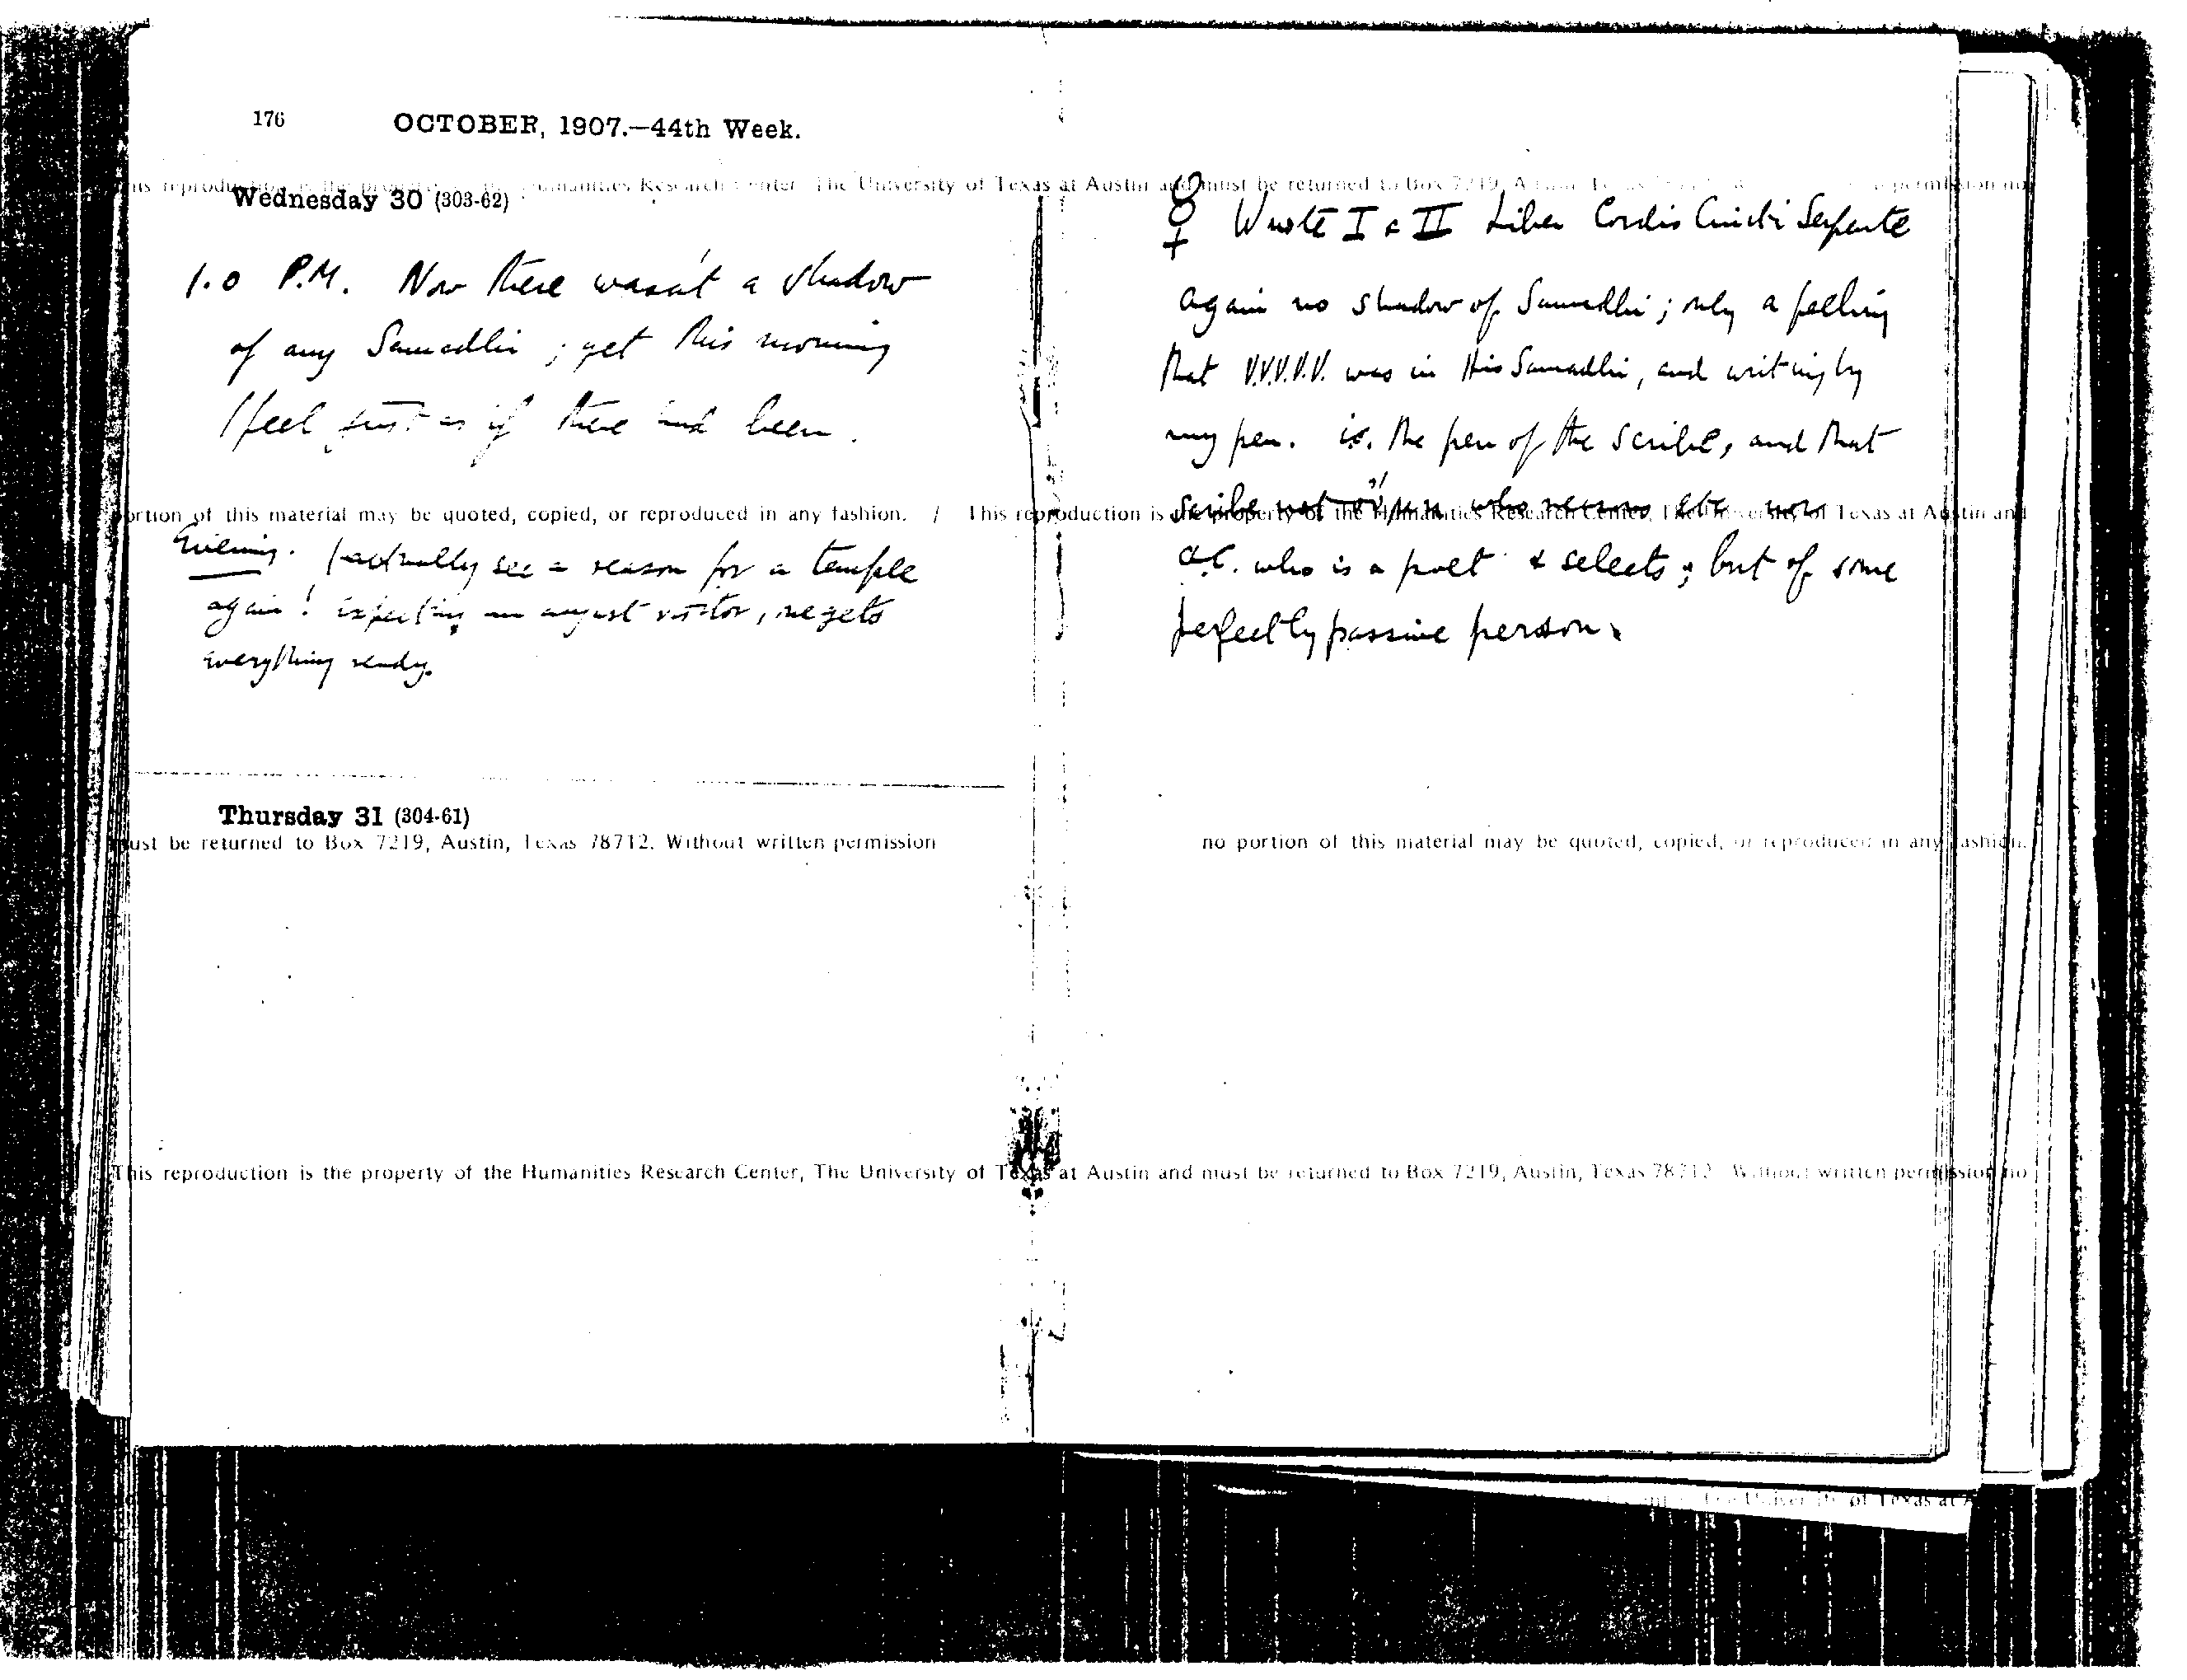 176 OCTOBER, 1907.—44th Week.
Wednesday 30 (303-62)
1.0 P.M. Now there wasn't a shadow
of any Samadhi; yet this morning
I feel just as if there had been.
portion of this material may be quoted, copied, or reproduced in any fashion. /
Evening. I actually see a reason for a temple
again! Expecting an august visitor, one gets
everything ready.
Thursday 31 (304-61)
must be returned to Box 7219, Austin, Texas 78712. Without written permission
This reproduction is the property of the Humanities Research Center, The University of Texas at Austin and must be returned to Box 7219, Austin, Texas 78712. Without written permission no
is reproduction is the property of the Humanities Research Center The University of Texas at Austin and must be returned to Box 7219, permission no
☿ Wrote I & II Liber Cordis Cincti Serpente
again no shadow of Samadhi; only a feeling
that V.V.V.V.V. was in His Samadhi, and writing by
my pen. i.e. the pen of the scribe, and that
scribe not who reasons etc. nor
This reproduction is the property of the Humanities Research Center, The University of Texas at Austin and
A.C. who is a poet & selects; but of some
perfectly passive person.
no portion of this material may be quoted, copied, or reproduced in any fashion.
University of Texas at